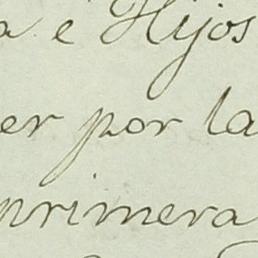 a é Hijos
er por la
primera